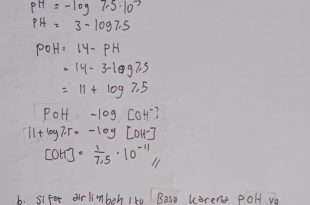 PH = -log 7,5.10⁻³
PH = 3 - log 7.5
POH = 14 - PH
= 14 - 3 - log 7.5
= 11 + log 7,5
POH = -log [OH⁻]
11 + log 7.5 = -log [OH⁻]
[OH⁻] = 1/7,5 . 10⁻¹¹ //
b. Sifat air limbah itu Basa karena POH ya